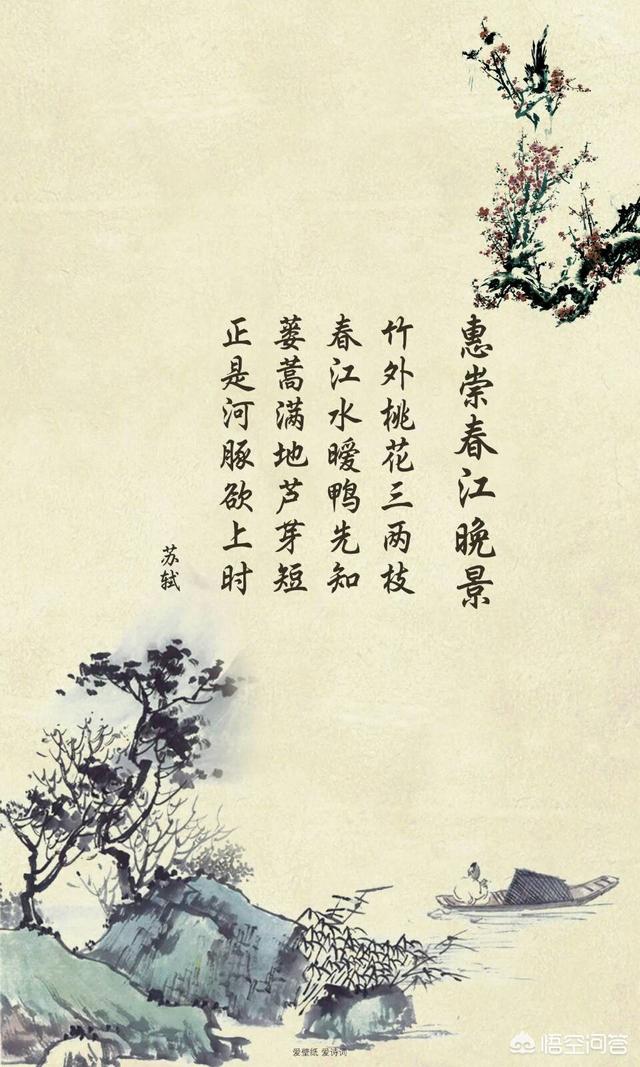 惠崇春江晚景
竹外桃花三两枝
春江水暧鸭先知
蒌蒿满地芦芽短
正是河豚欲上时
苏轼
爱壁纸 爱诗词
悟空问答